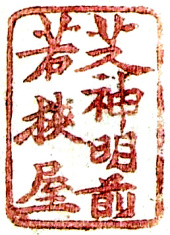 芝神明前
若狭屋